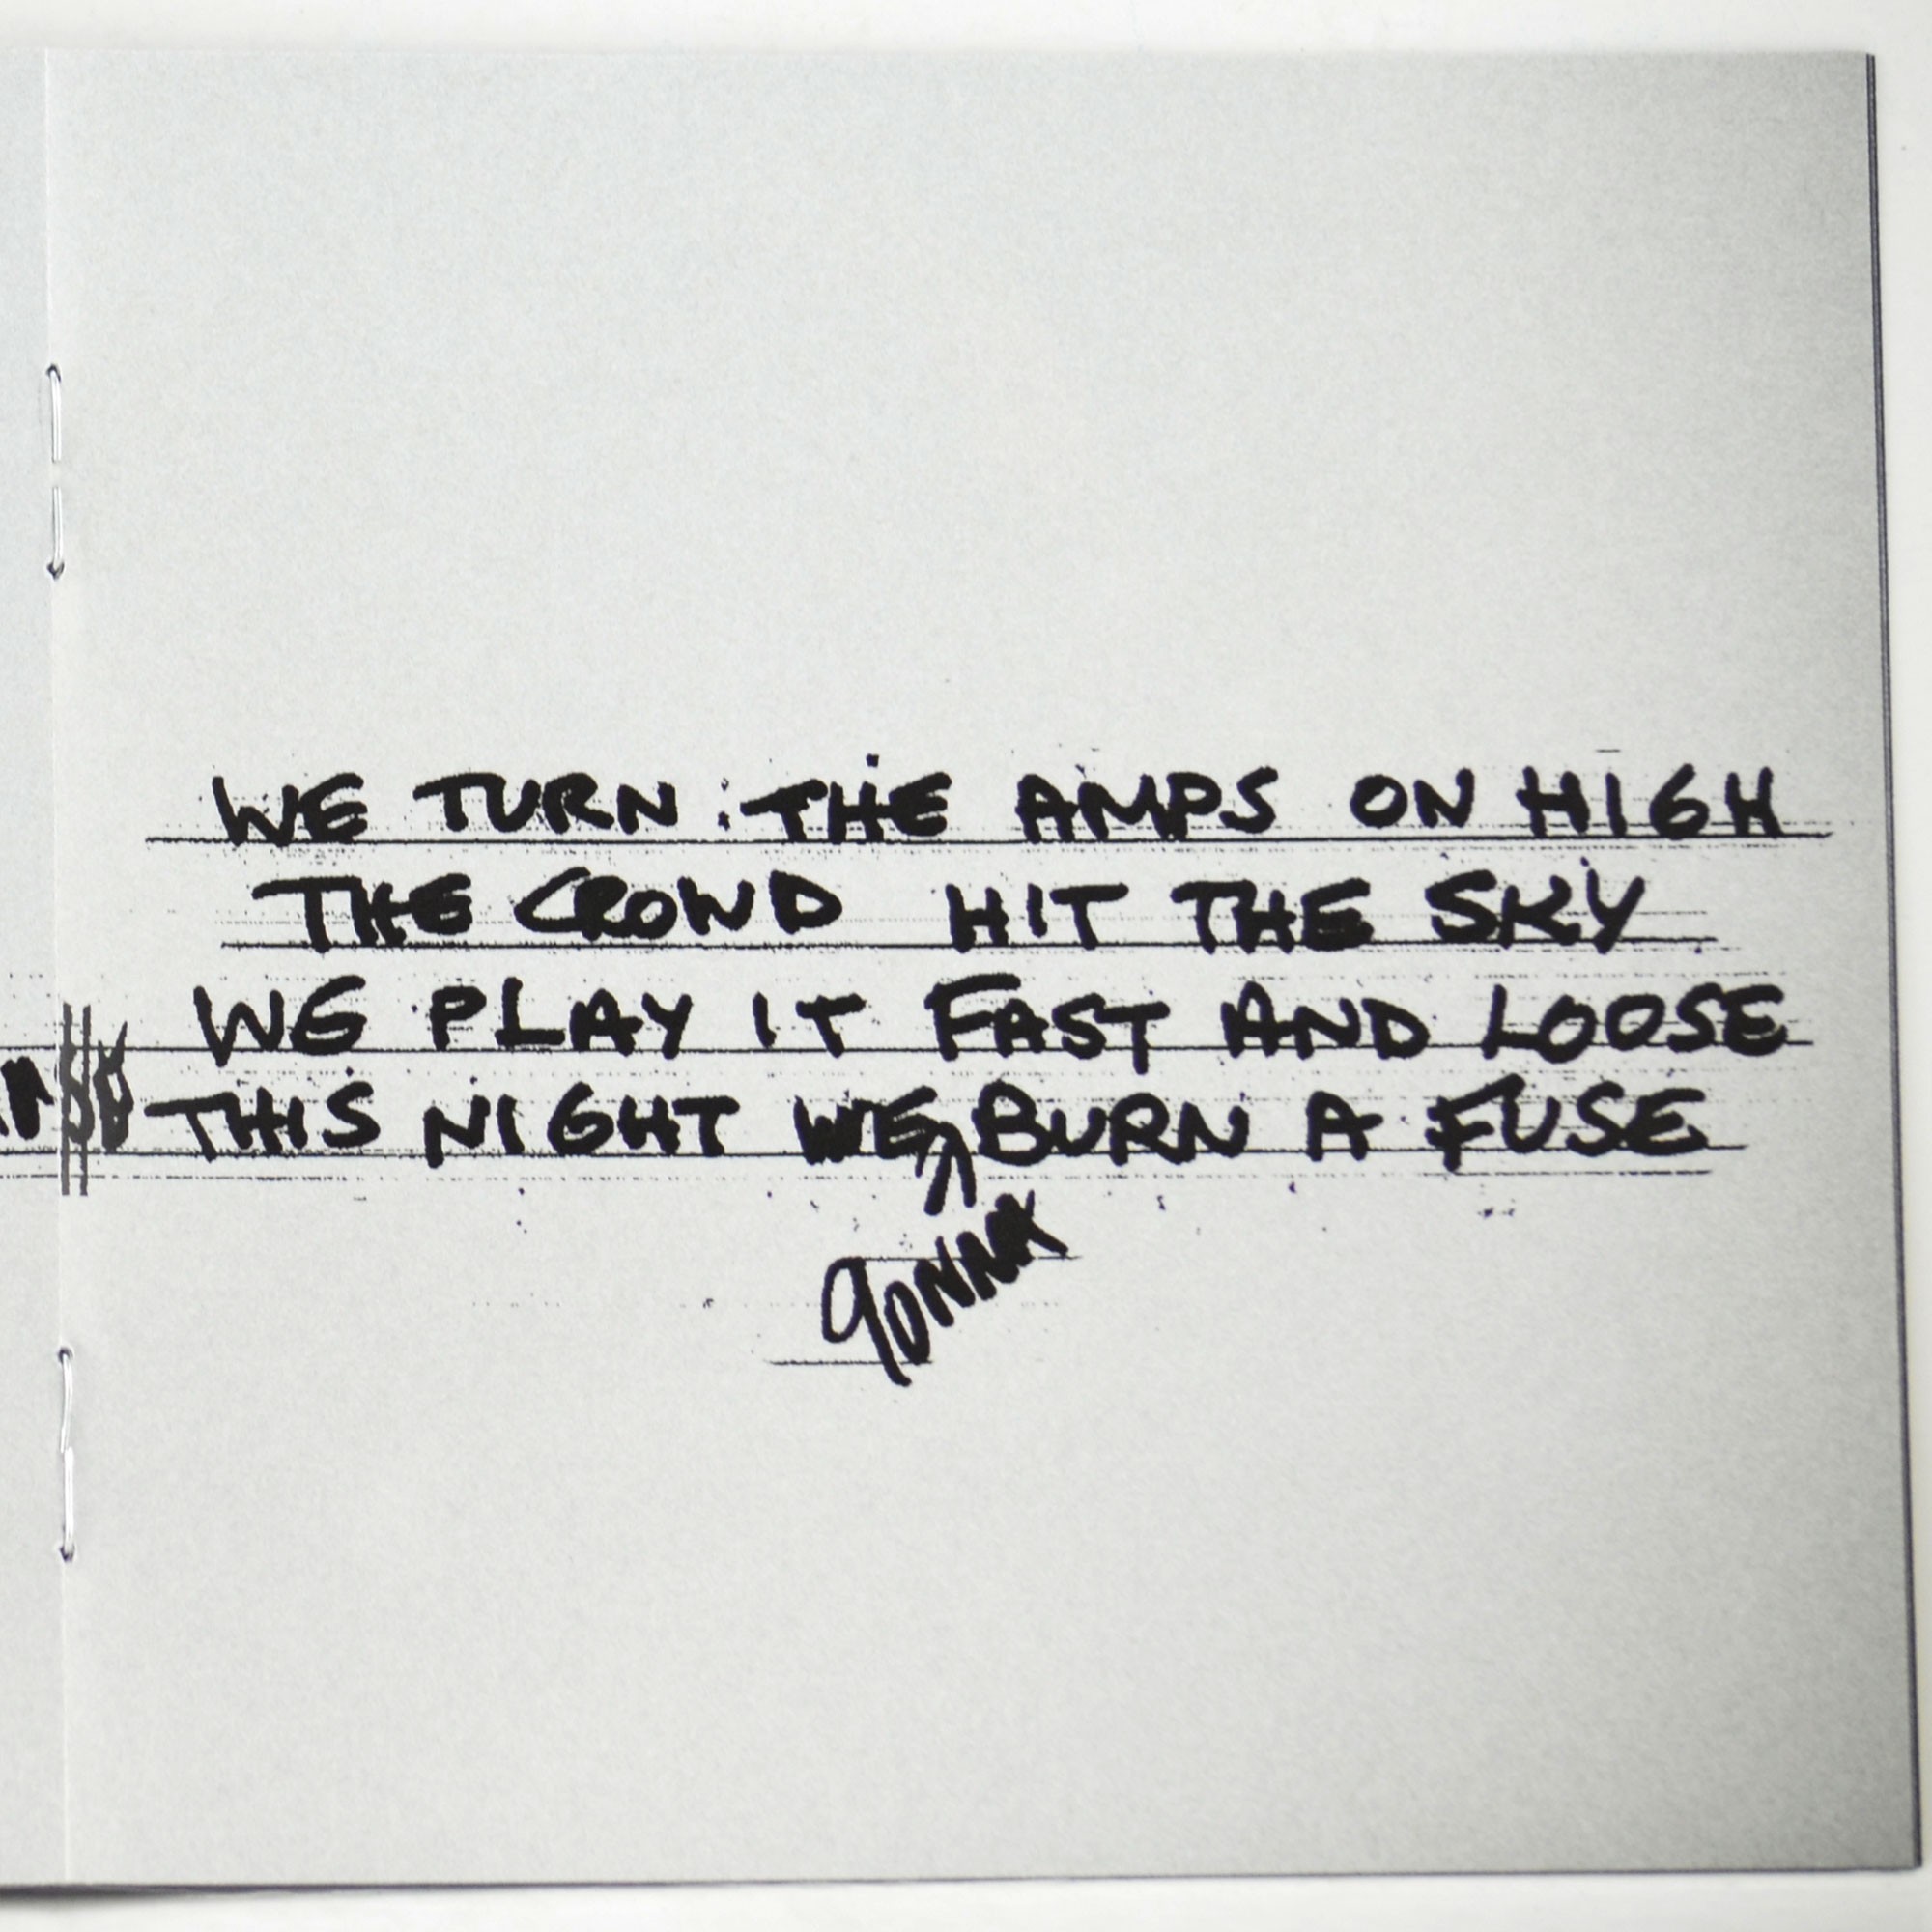 WE TURN THE AMPS ON HIGH
THE CROWD HIT THE SKY
WE PLAY IT FAST AND LOOSE
THIS NIGHT WE BURN A FUSE
gONNA